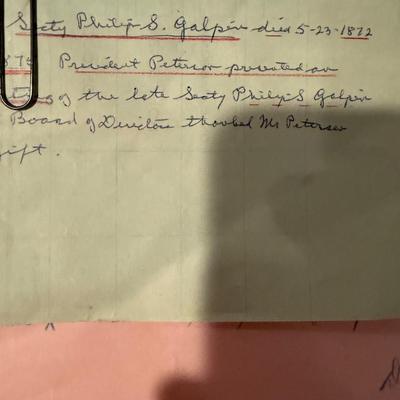 Secty Philip S. Galpin died 5-23-1872
President Peterson presented an
of the late Secty Philip S Galpin
Board of Directors thanked Mr Peterson
gift.